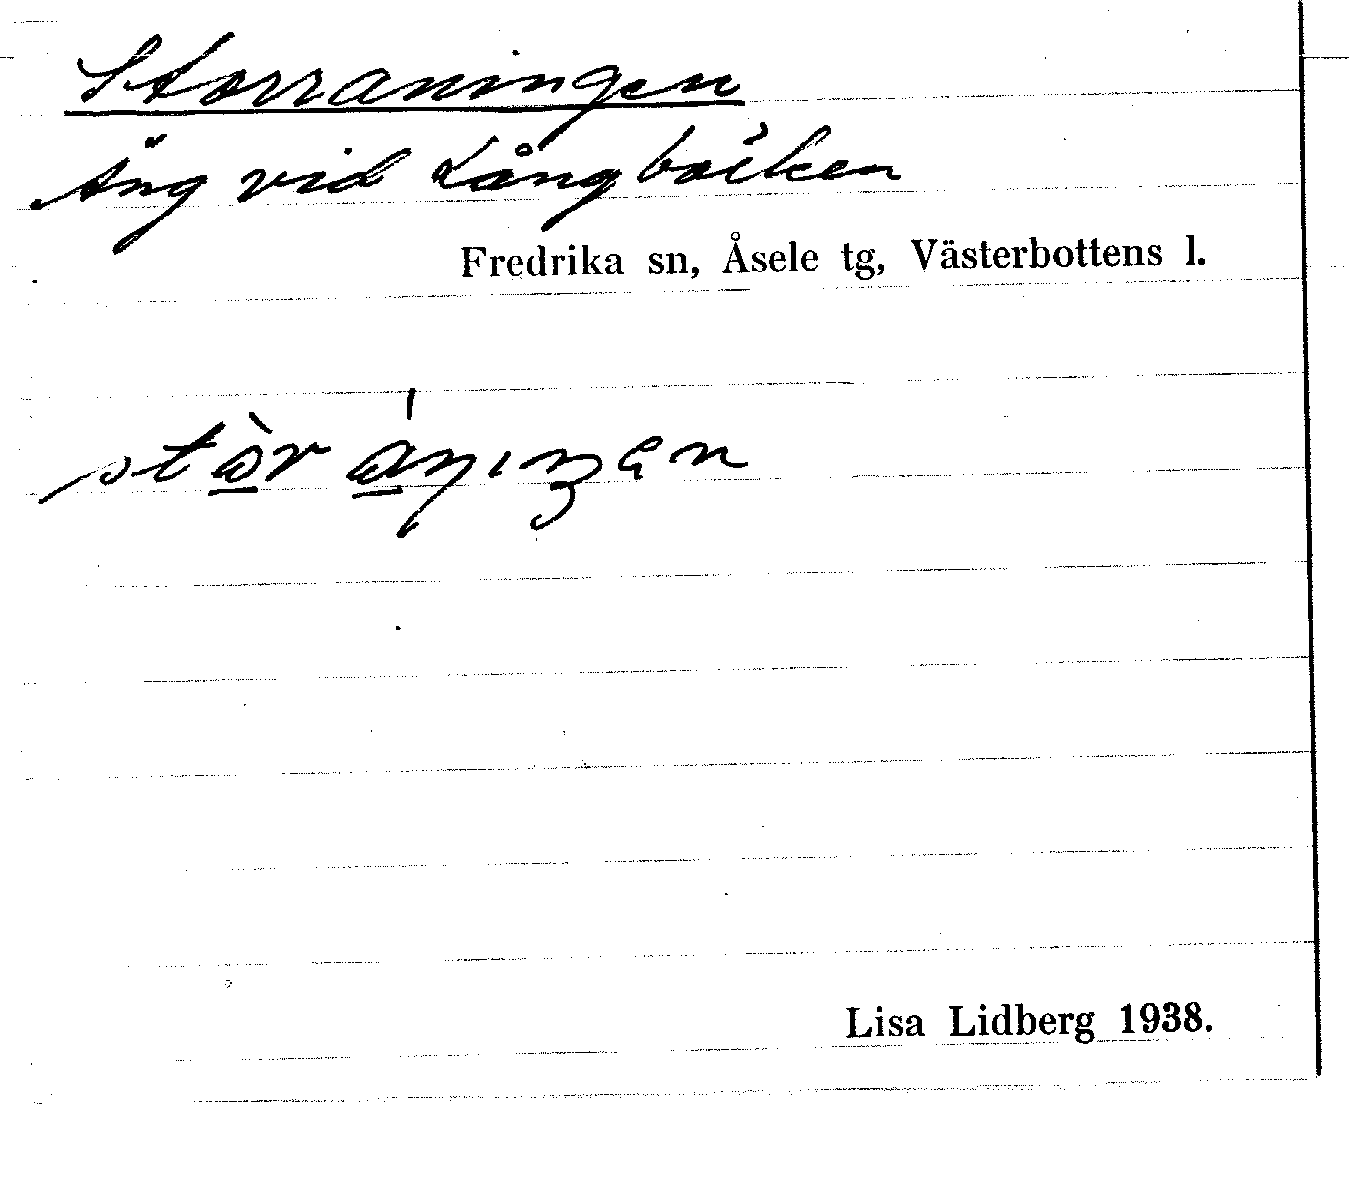 Storraningen
Äng vid Långbäcken
Fredrika sn, Åsele tg, Västerbottens l.
Lisa Lidberg 1938.